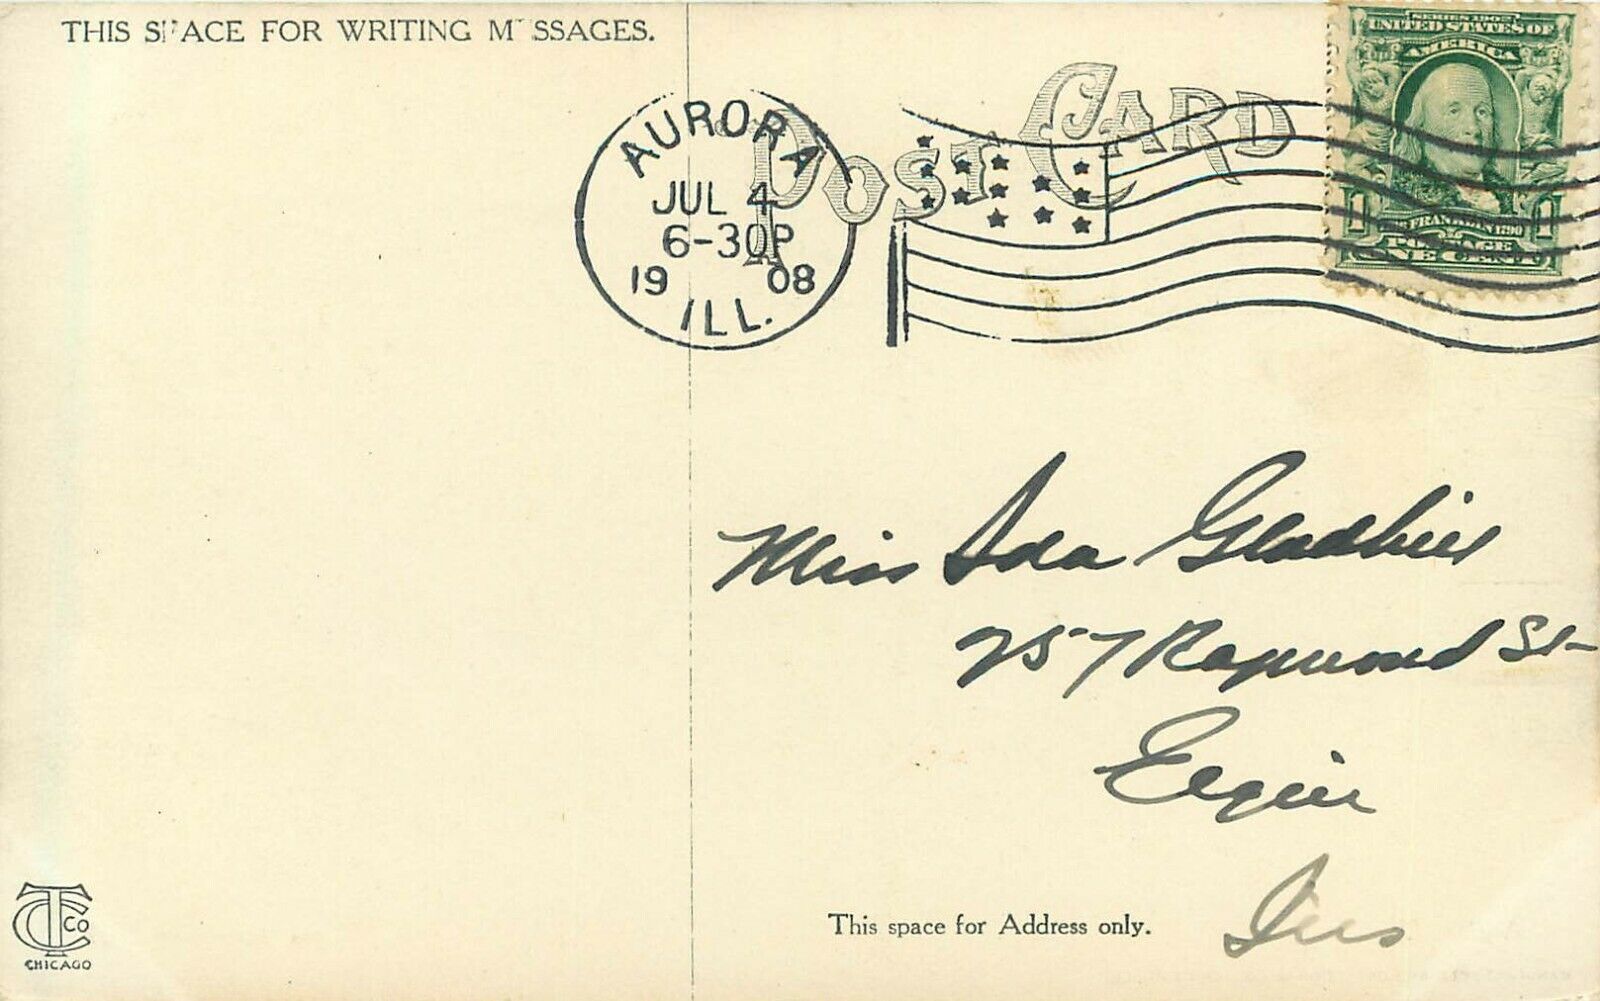 THIS SPACE FOR WRITING MESSAGES.
POST CARD
AURORA
JUL 4
6-30P
19 08
ILL.
SERIES 1902
UNITED STATES OF
AMERICA
1 FRANKLIN 1790 1
POSTAGE
ONE CENT
Miss Ida Gladhill
257 Raymond St
Elgin
Ills
This space for Address only.
CTCo
CHICAGO